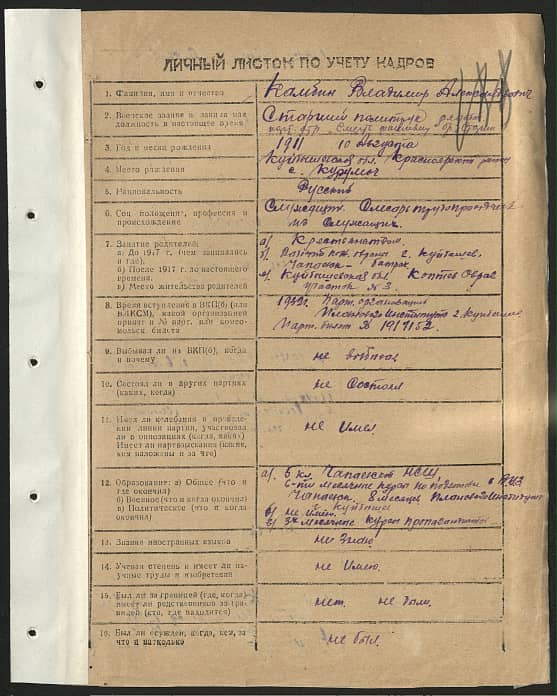 ЛИЧНЫЙ ЛИСТОК ПО УЧЕТУ КАДРОВ
1. Фамилия, имя и отчество
Владимир Александрович
2. Воинское звание и занимаемая
должность в настоящее время
Старший политрук
3. Год и месяц рождения
1911 10 Августа
4. Место рождения
Куйбышевская обл. Красноярский район
с. Курумоч
5. Национальность
Русский
6. Соц. положение, профессия и
происхождение
Служащий. Слесарь
из служащих.
7. Занятие родителей:
а) До 1917 г. (чем занимались
и где).
б) После 1917 г. до настоящего
времени.
в) Место жительства родителей
а) Крестьянством.
б) охрана г. Куйбышев,
Чапаевск
в) Куйбышевская обл.
участок № 3.
8. Время вступления в ВКП(б) (или
ВЛКСМ), какой организацией
принят и № парт. или комсо-
мольск. билета
Парт. организация
Планового Института г. Куйбышев
Парт. билет №
9. Выбывал ли из ВКП(б), когда
и почему
не выбывал
10. Состоял ли в других партиях
(каких, когда)
не состоял
11. Имел ли колебания в проведе-
нии линии партии, участвовал
ли в оппозициях (когда, каких)
Имел ли партвзыскания (какие,
кем наложены и за что)
не имел
12. Образование: а) Общее (что и
где окончил)
б) Военное (что и когда окончил)
в) Политическое (что и когда
окончил)
а). 6 кл. Чапаевск
6-ти месячные курсы по подготовке в
Чапаевск. 8 месяцев Планового Института
Куйбышев
б) не имею.
в) 3х месячные курсы пропагандистов
13. Знание иностранных языков
не знаю
14. Ученая степень и имеет ли на-
учные труды и изобретения
не имею.
15. Был ли за границей (где, когда)
имеет ли родственников за гра-
ницей (кто, где находится)
нет. не был.
16. Был ли осужден, когда, кем, за
что и насколько
не был.